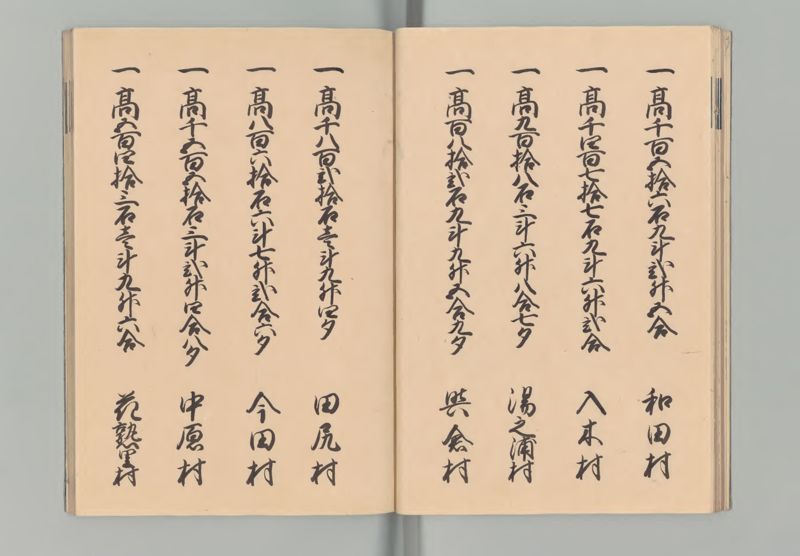 一 高千百五拾六石九斗弐升五合 和田村
一 高千四百七拾七石九斗六升弐合 入木村
一 高九百拾八石三斗六升八合七夕 湯之浦村
一 高百八拾弐石九斗九升五合九夕 與倉村
一 高千八百弐拾石壱斗九升四夕 田尻村
一 高八百六拾石六斗七升弐合六夕 今田村
一 高千五百五拾石三斗弐升四合八夕 中原村
一 高五百四拾三石壱斗九升六合 花熟里村